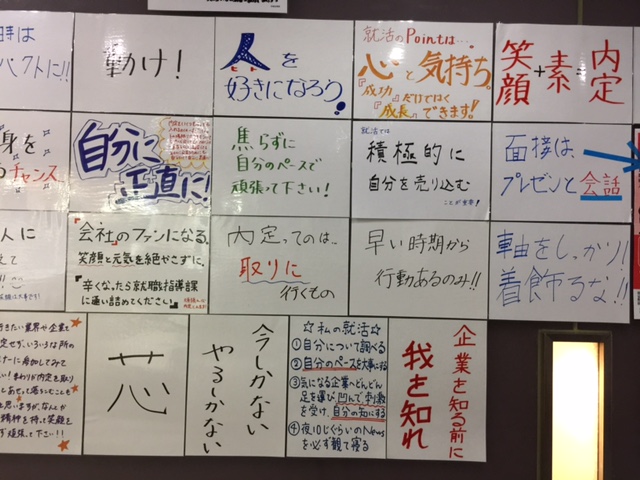 時は
パクトに!!
動け!
人を
ヒト
好きになろう。
就活のPointは…
心と気持ち。
『成功』だけではなく
『成長』できます!!
笑顔+素=内定
身を
チャンス
自分に
正直に!
焦らずに
自分のペースで
頑張って下さい!
就活では
積極的に
自分を売り込む
ことが重要!
面接は、
プレゼンと会話
人に
えて
「会社」のファンになる。
笑顔と元気を絶やさずに、
辛くなったら就職指導課
に通い詰めてください。
内定ってのは…
取りに
行くもの
早い時期から
行動あるのみ!!
軸をしっかり!
着飾るな!!
行きたい業界や企業を
定せず、いろいろな所の
ナーに参加してみて
い!まわりが内定を取り
しあせって落ちこむことも
と思いますが、なんとか
精神を持って笑顔を
ず頑張って下さい!!
芯
今しかない
やるしかない
☆私の就活☆
①自分について調べる
②自分のペースを大事にする
③気になる企業へどんどん
足を運び、凹んで刺激
を受け、自分の知にする
④夜10じくらいのNews
を必ず観て寝る
企業を知る前に
我を知れ